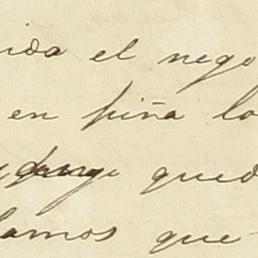 ida el nego
en piña lo
qued
lamos que